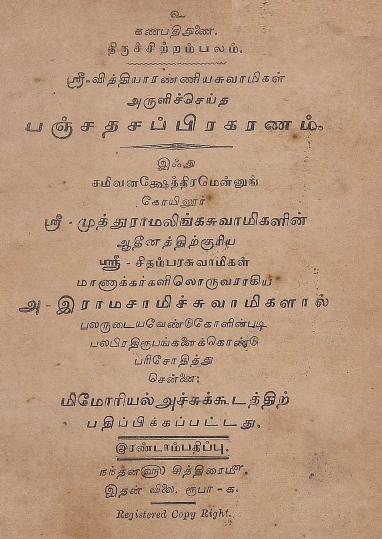 உ
கணபதிதுணை.
திருச்சிற்றம்பலம்.
ஸ்ரீ-வித்தியாரண்ணியசுவாமிகள்
அருளிச்செய்த
பஞ்சதசப்பிரகரணம்.
இஃது
சமிவனக்ஷேத்திரமென்னுங்
கோயிலூர்
ஸ்ரீ - முத்துராமலிங்கசுவாமிகளின்
ஆதீனத்திற்குரிய
ஸ்ரீ - சிதம்பரசுவாமிகள்
மாணாக்கர்களிலொருவராகிய
அ - இராமசாமிச்சுவாமிகளால்
பலருடையவேண்டுகோளின்படி
பலபிரதிரூபங்களைக்கொண்டு
பரிசோதித்து
சென்னை;
மிமோரியல் அச்சுக்கூடத்திற்
பதிப்பிக்கப்பட்டது.
இரண்டாம்பதிப்பு.
நந்தன௵ சித்திரை௴
இதன் விலை, ரூபா - க.
Registered Copy Right.